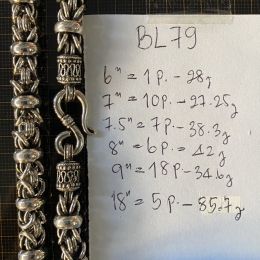 BL79
6" = 1 p. - 28g
7" = 10 p. - 27.25g
7.5" = 7 p. - 38.3g
8" = 6 p. = 42g
9" = 18 p. - 34.6g
18" = 5 p. - 85.7g